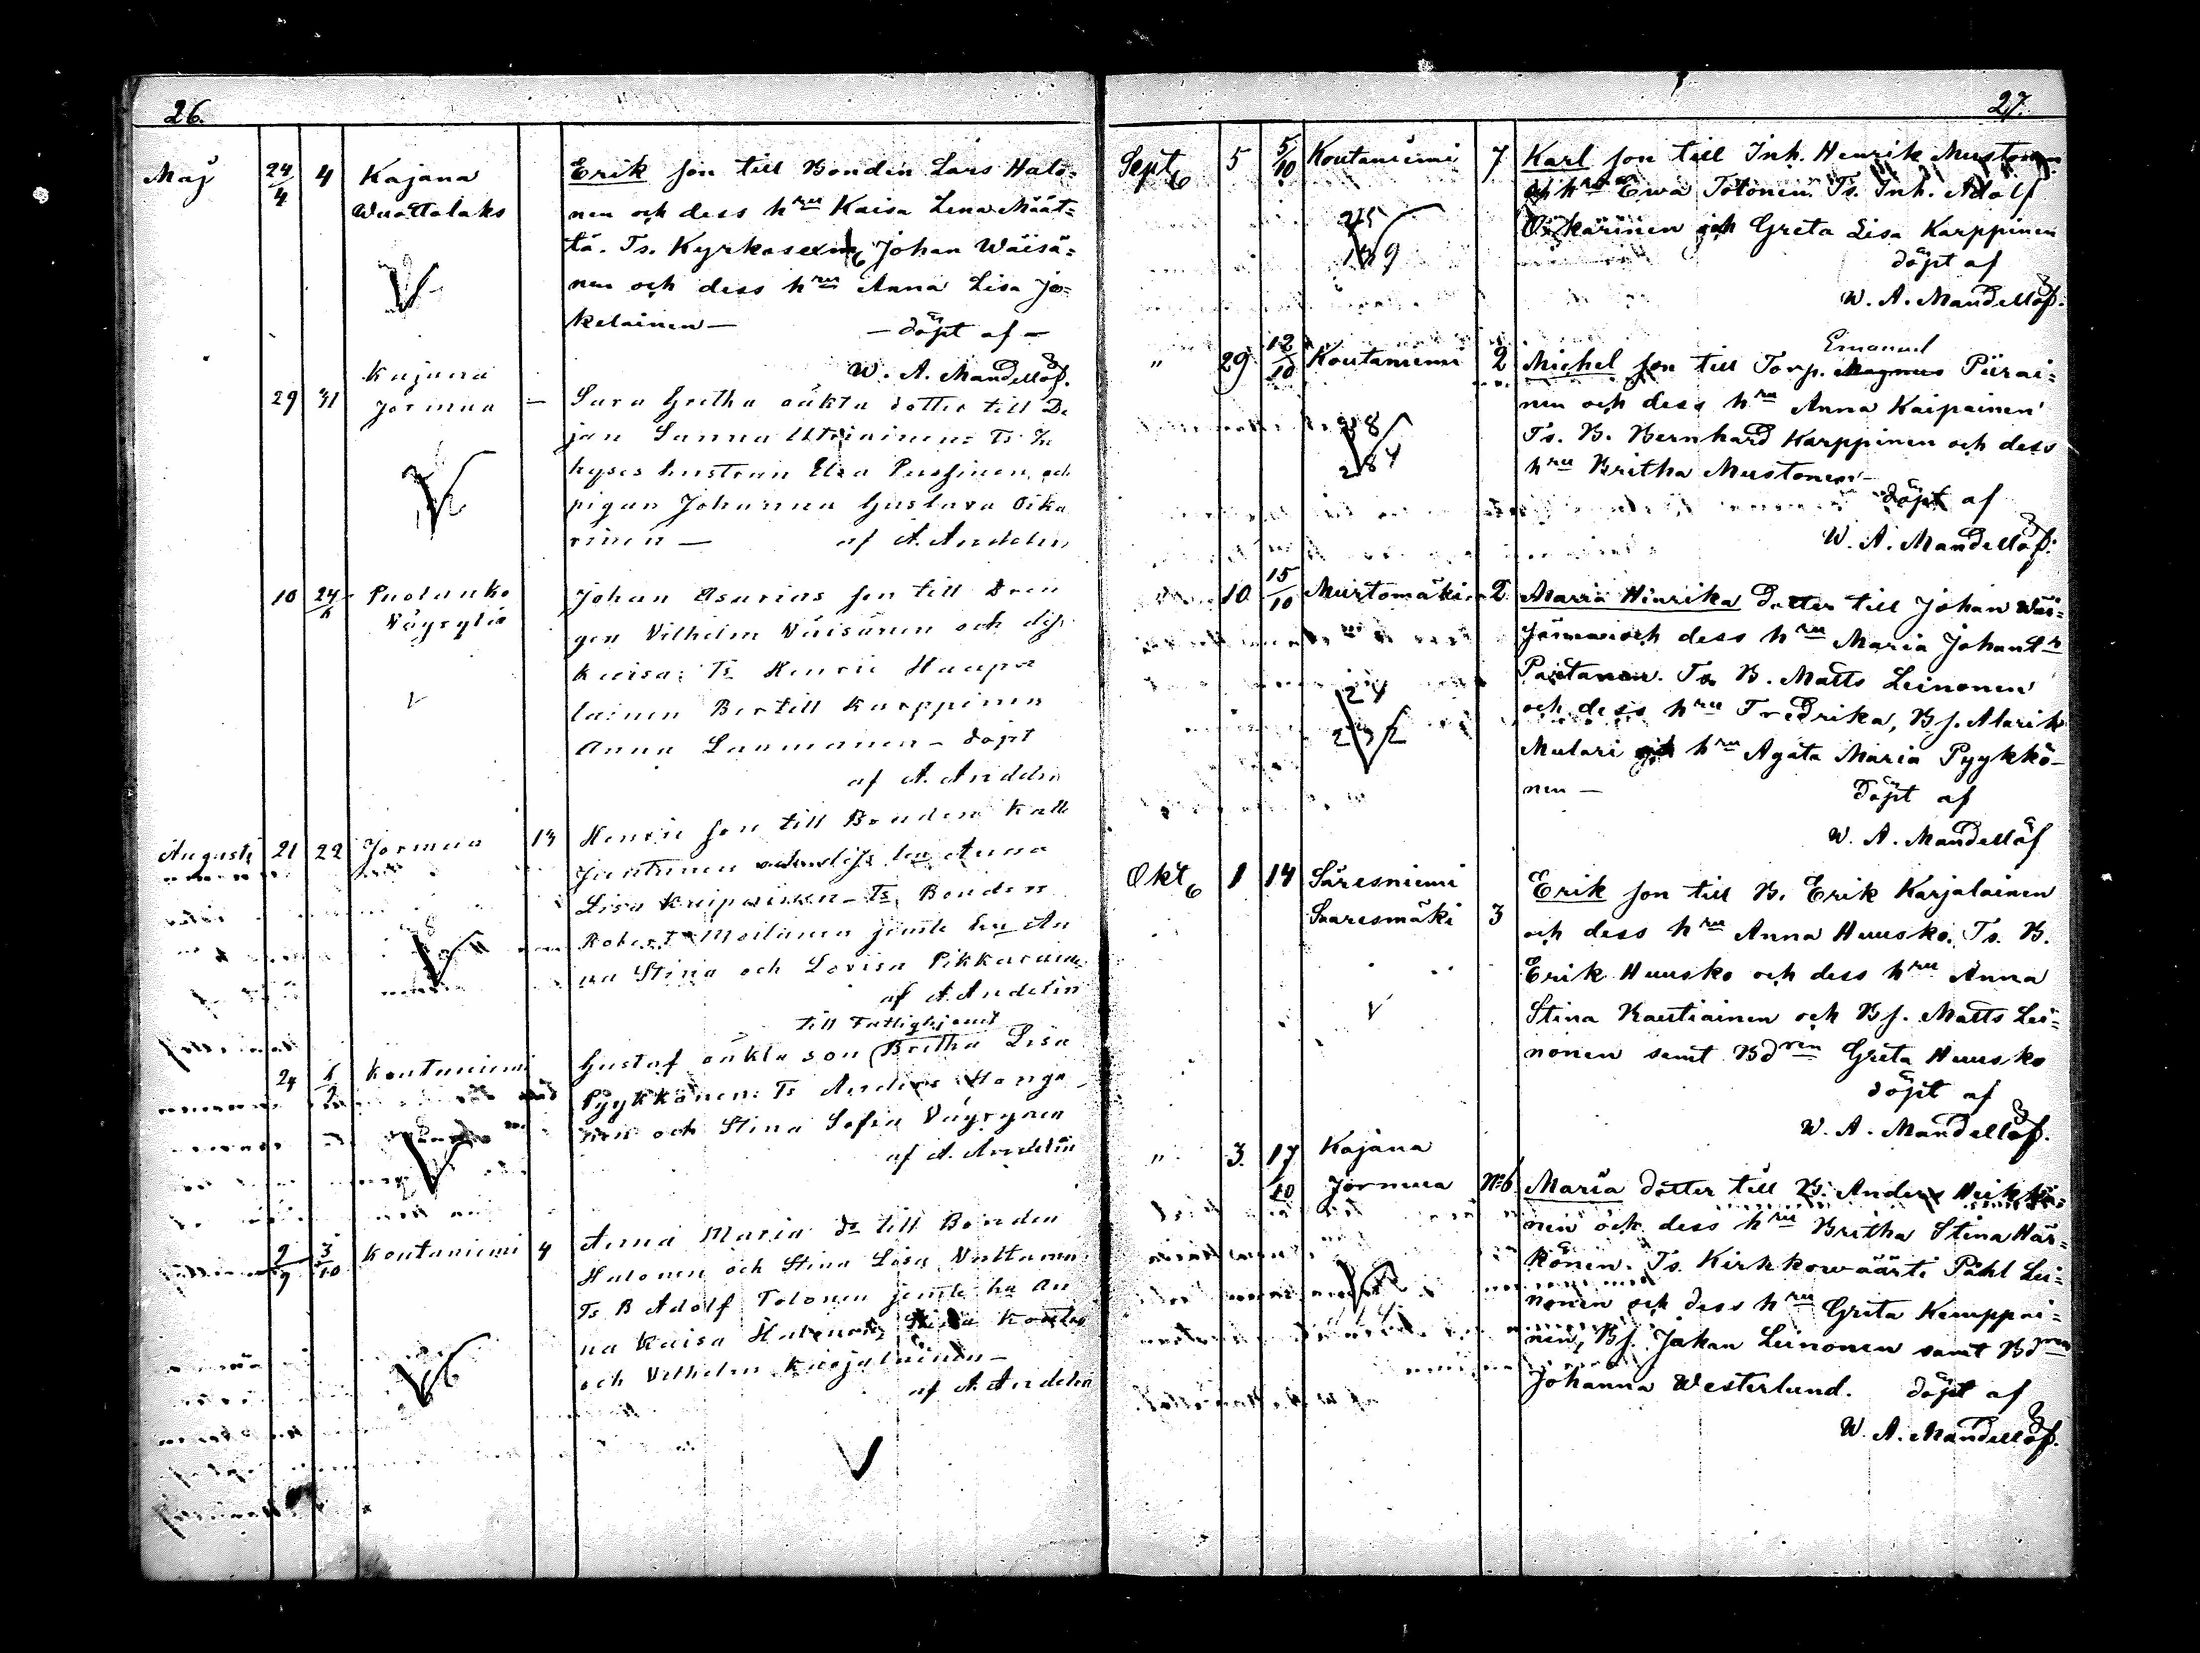 26.
Maj 24/4 4 Kajana Erik son till Bonden Lars Halo-
Wuottolaks nen och dess hru Kaisa Lena Määt-
tä. Ts. Kyrkosexm Johan Wäisä-
nen och dess hru Anna Lisa Jo-
kelainen — — döpt af —
W. A. Mandellöf.
Kajana
29 31 Jormua — Sara Gretha oäkta dotter till De
jan Sanna Ts
hyses hustrun Elsa Pussinen, och
pigan Johanna Gustava Oika
rinen — af A. Andelin
10 24/6 Puolanko Johan Asarias son till Dren
Väyrylä gen Vilhelm Väisänen och dess
Ts Henric Haapa
lainen Bertill Karppinen
Anna Laumanen — döpt
af A. Andelin
Augusti 21 22 Jormua 13 Henric son till Bonden Kalle
Juntunen Anna
Lisa Kaipainen — Ts. Bonden
Robert Moilanen jemte hu An
na Stina och Lovisa Pikkarainen
af A. Andelin
till
24 6/9 Koutaniemi Gustaf oäkta son Britha Lisa
Pyykkönen: Ts Anders Hanga
nen och Stina Sofia Väyrynen
af A. Andelin
9/9 3/10 Koutaniemi 4 Anna Maria dr till Bonden
Halonen och Stina Lisa
Ts B Adolf Tolonen jemte hu An
na Kaisa
och Vilhelm Karjalainen —
af A. Andelin
27.
Sept 6 5 5/10 Koutaniemi 7 Karl son till Inh. Henrik Mustonen
och hru Ewa Tolonen. Ts. Inh. Adolf
Oikarinen och Greta Lisa Karppinen
döpt af
W. A. Mandellöf.
Emanuel
" 29 12/10 Koutaniemi 2 Michel son till Torp. Magnus Piirai-
nen och dess hru Anna Kaipainen
Ts. B. Bernhard Karppinen och dess
hru Britha Mustonen —
döpt af
W. A. Mandellöf.
10 15/10 Murtomäki 2 Maria Hinrika dotter till Johan Wäi-
och dess hru Maria Johan
Partanen. Ts B. Matts Leinonen
och dess hru Fredrika, Bs. Alarik
Mulari och hru Agata Maria Pyykkö-
nen — döpt af
W. A. Mandellöf
Okt 6 1 14 Säresniemi Erik son till B. Erik Karjalainen
Saaresmäki 3 och dess hru Anna Huusko. Ts. B.
Erik Huusko och dess hru Anna
Stina Rautiainen och Bs. Matts Lei-
nonen samt Bdren Greta Huusko
döpt af
W. A. Mandellöf.
" 3. 17/10 Kajana
Jormua No 6 Maria dotter till B. Anders Heikki-
nen och dess hru Britha Stina Här-
könen. Ts. Kirkkowäärti Påhl Lei-
nonen och dess hru Greta Kemppai-
nen, Bs. Johan Leinonen samt Bdren
Johanna Westerlund. döpt af
W. A. Mandellöf.